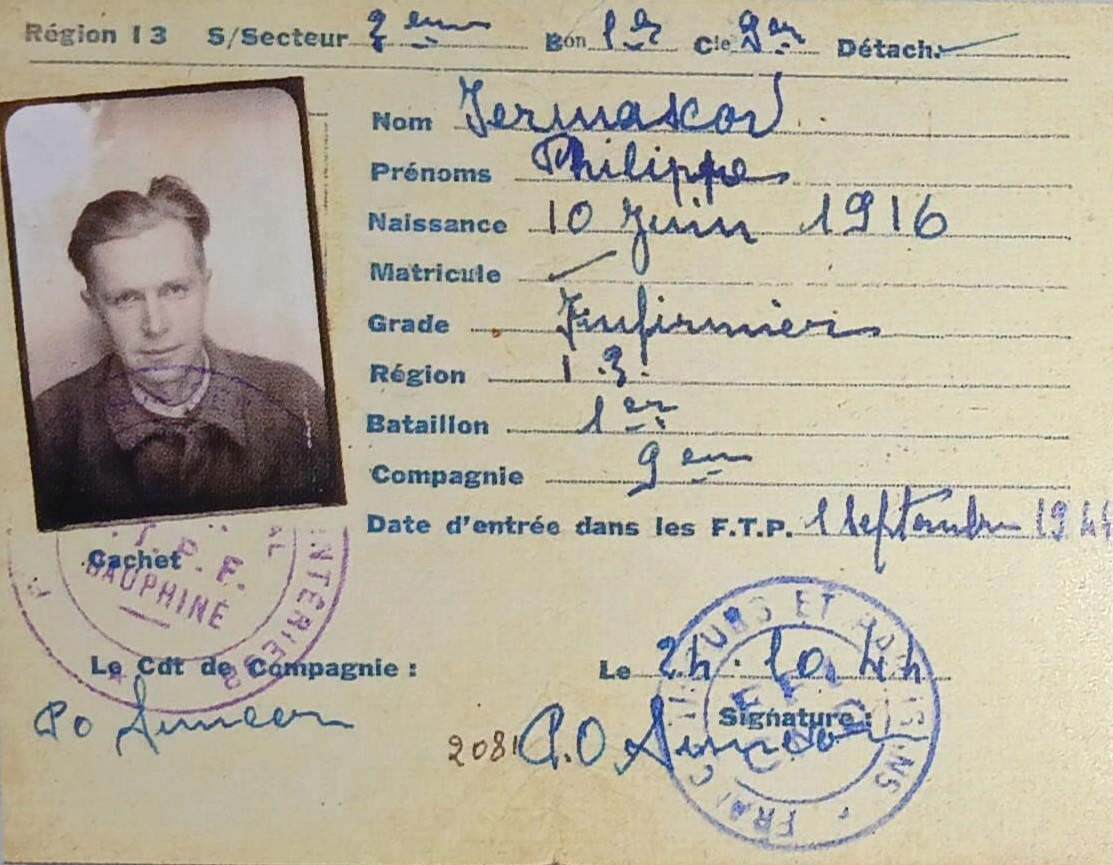 Région I 3 S/Secteur 2eme Bon 1er Cie 9em Détach.
Nom Jermakov
Prénoms Philippe
Naissance 10 Juin 1916
Matricule
Grade Infirmier
Région I 3.
Bataillon 1er
Compagnie 9em
Date d'entrée dans les F.T.P. 1 Septembre 1944
Cachet
T. P. F.
DAUPHINÉ
INTÉRIEURES
Le Cdt de Compagnie :
Po
Le 24.10 44
Signature :
2081 P.O
TIREURS ET PARTISANS FRANÇAIS